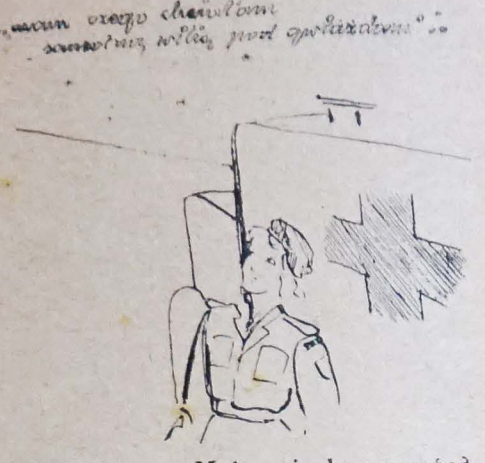 „mam czego chciałam
samotną wilię pod gwiazdami"...